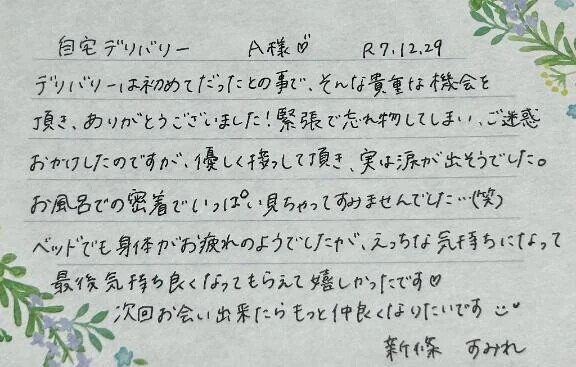 自宅デリバリー A様♡ R7.12.29
デリバリーは初めてだったとの事で、そんな貴重な機会を
頂き、ありがとうございました!緊張で忘れ物してしまい、ご迷惑
おかけしたのですが、優しく接っして頂き、実は涙が出そうでした。
お風呂での密着でいっぱい見ちゃってすみませんでした…(笑)
ベッドでも身体がお疲れのようでしたが、えっちな気持ちになって
最後気持ち良くなってもらえて嬉しかったです♡
次回お会い出来たらもっと仲良くなりたいです
新條 すみれ